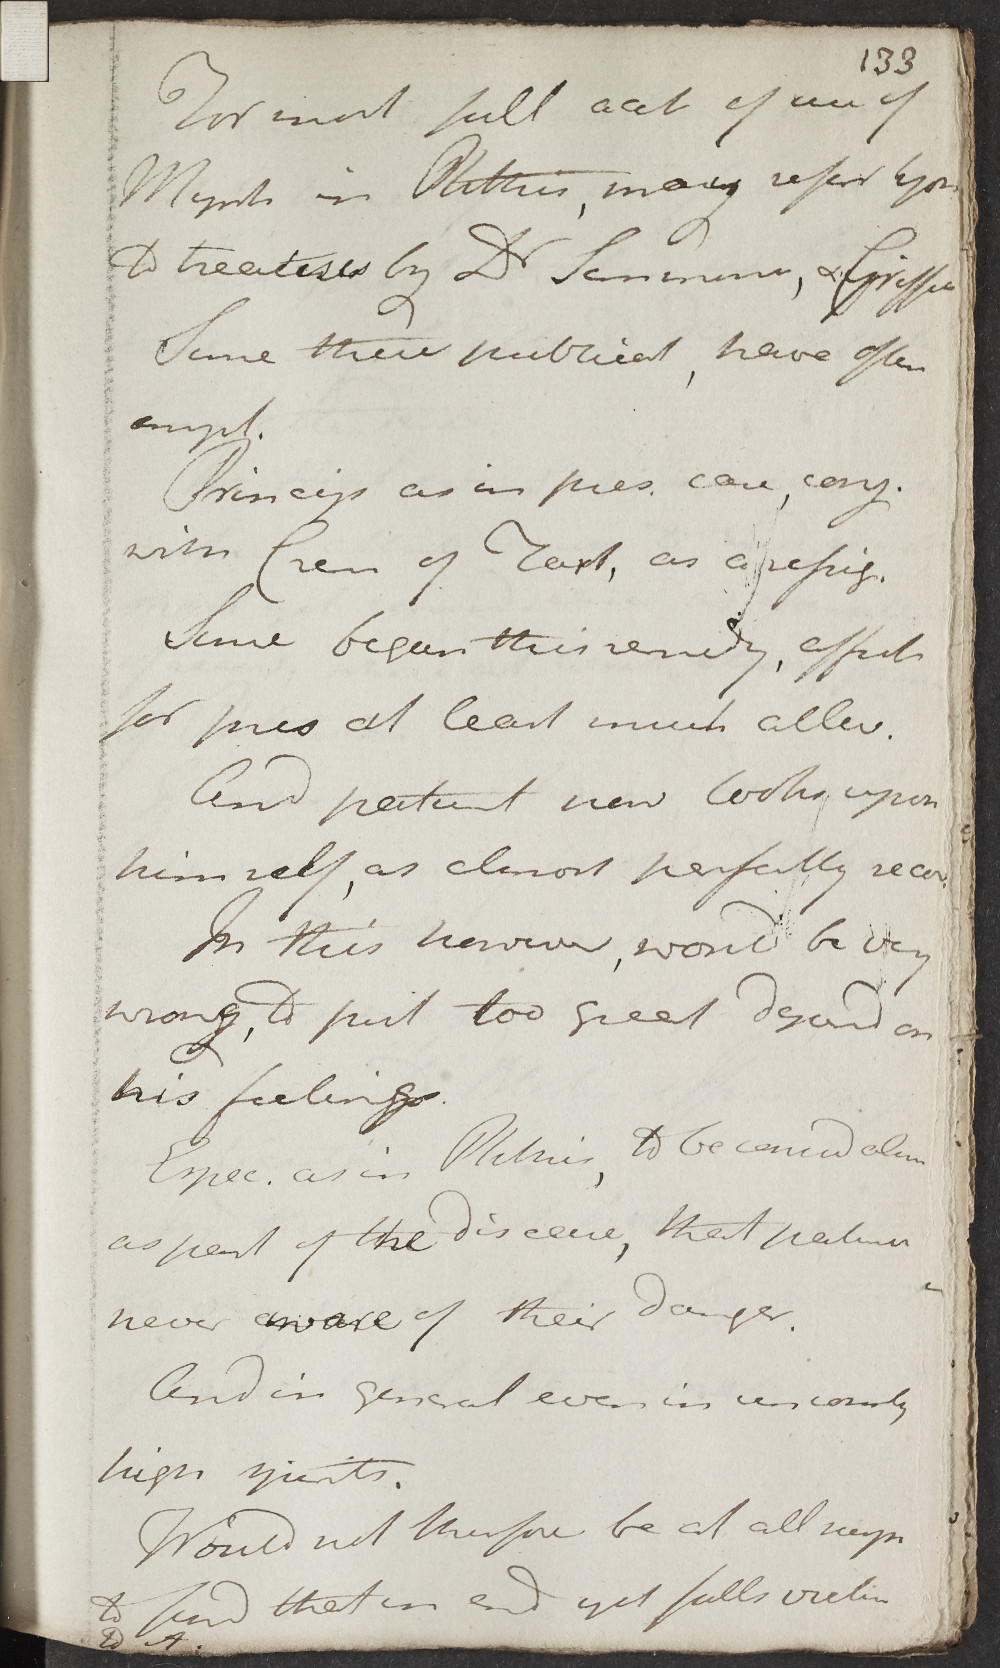 133
For most full acct of use of
Myrrh in Phthisis, may refer you
to treatises by Dr Simmons, &
Since these publicat, have often
empl.
Princip as in pres. case, conj.
with Crem of Tart, as a refrig.
Since began this remedy, affect
for pres at least much allev.
And patient now looks upon
himself, as almost perfectly recov.
In this however, would be very
wrong, to put too great depend on
his feelings.
Espec. as in Phthisis, to be consid alm
as part of the disease, that patient
never aware of their danger.
And in general even in uncomly
high spirits.
Would not therefore be at all
to find that in end yet falls victim
to it.